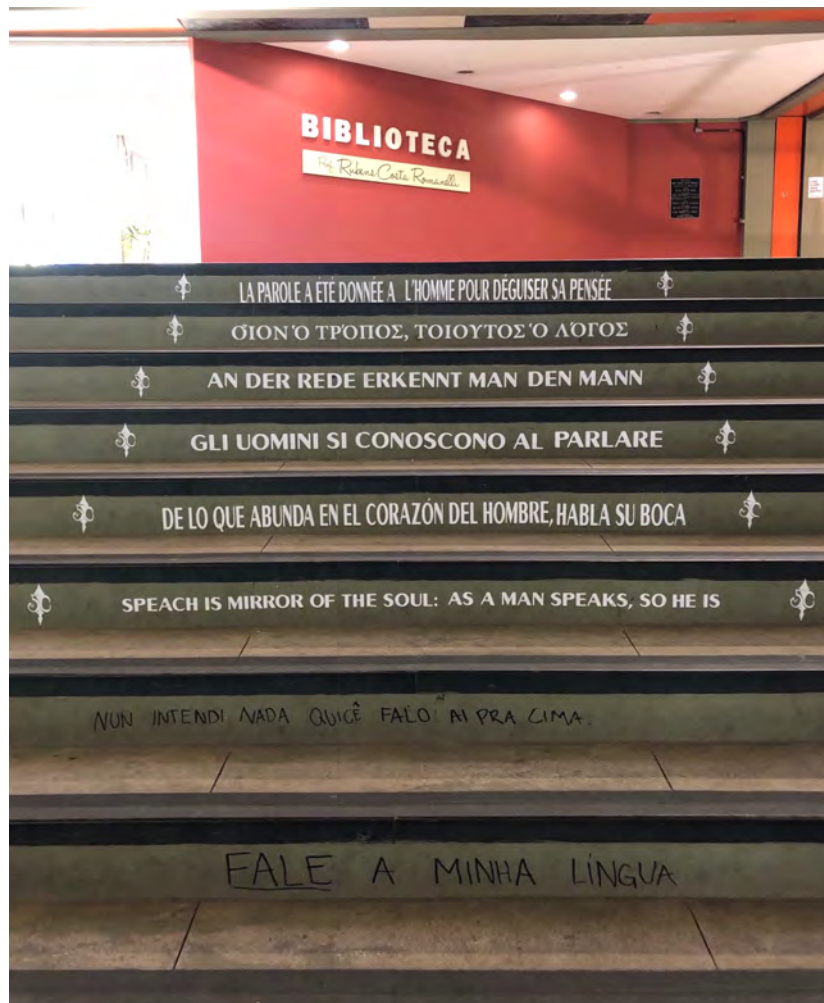 BIBLIOTECA
Prof. Rubens Costa Romanelli
LA PAROLE A ÉTÉ DONNÉE A L'HOMME POUR DÉGUISER SA PENSÉE
ΟἹΟΝ Ὁ ΤΡΌΠΟΣ, ΤΟΙΟΥΤΟΣ Ὁ ΛΌΓΟΣ
AN DER REDE ERKENNT MAN DEN MANN
GLI UOMINI SI CONOSCONO AL PARLARE
DE LO QUE ABUNDA EN EL CORAZÓN DEL HOMBRE, HABLA SU BOCA
SPEACH IS MIRROR OF THE SOUL: AS A MAN SPEAKS, SO HE IS
NUN INTENDI NADA QUICÊ FALO AI PRA CIMA.
FALE A MINHA LÍNGUA